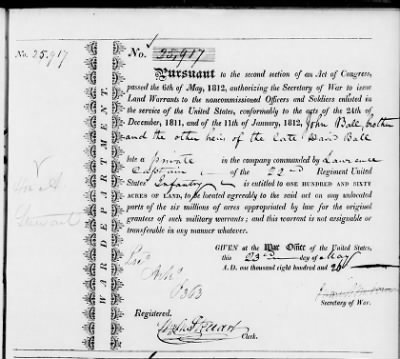 No. 25.917
No. 25,917
WAR DEPARTMENT.
Pursuant to the second section of an Act of Congress,
passed the 6th of May, 1812, authorizing the Secretary of War to issue
Land Warrants to the noncommissioned Officers and Soldiers enlisted in
the service of the United States, conformably to the acts of the 24th of
December, 1811, and of the 11th of January, 1812, John Ball, brother
and the other heirs of the late David Ball
late a private in the company commanded by Lawrence
Captain of the 22nd Regiment United
States' Infantry is entitled to ONE HUNDRED AND SIXTY
ACRES OF LAND, to be located agreeably to the said act on any unlocated
parts of the six millions of acres appropriated by law for the original
grantees of such military warrants; and this warrant is not assignable or
transferable in any manner whatever.
GIVEN at the War Office of the United States,
this 23 day of May
A. D. one thousand eight hundred and 26
Secretary of War.
Registered.
Clerk.